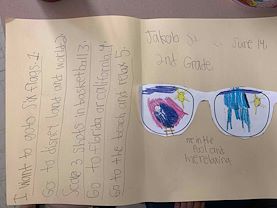 I want to go to Six flags. 1
Go to disny land and world 2
Score 3 shots in basketball 3.
Go to Florida or california 4.
Go to the beach and relax 5.
Jakob
June 14,
2nd Grade
me in the
Pool and
me relaxing